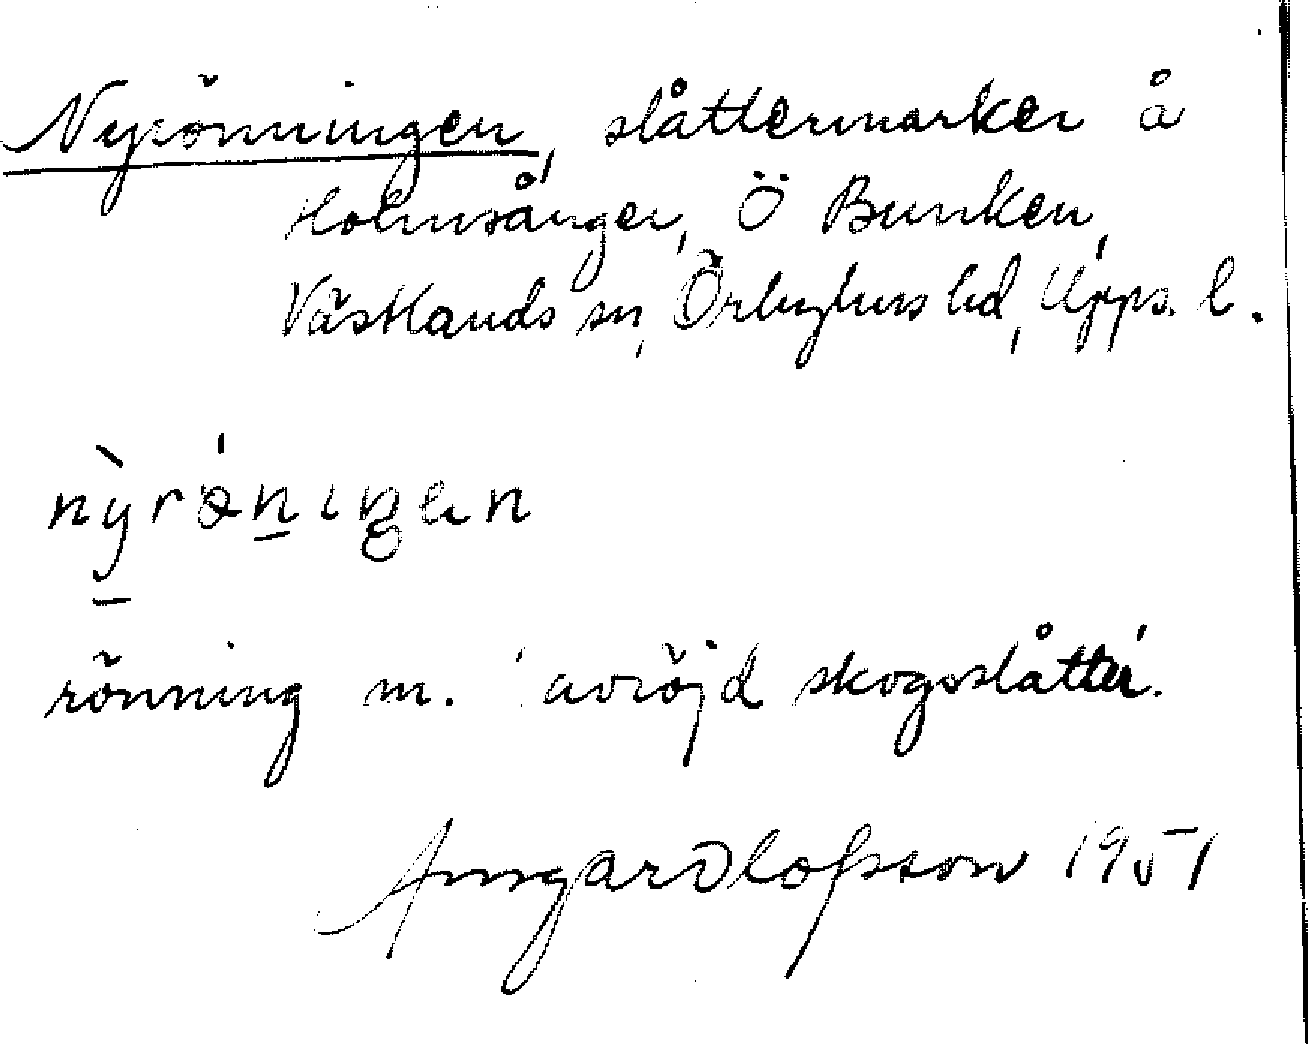 Nyrönningen, slåttermarker å
Holmsånger, Ö Bunken,
Västlands sn, Örbyhus hd, Upps. l.
nỳrǿn̲ıŋen
rönning m. 'avröjd skogsslåtter'.
Ansgar Olofsson 1951